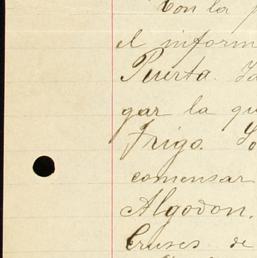 Con la p
el inform
Puerta.
gar la qu
Trigo.
comensar
Algodon.
Cruses de